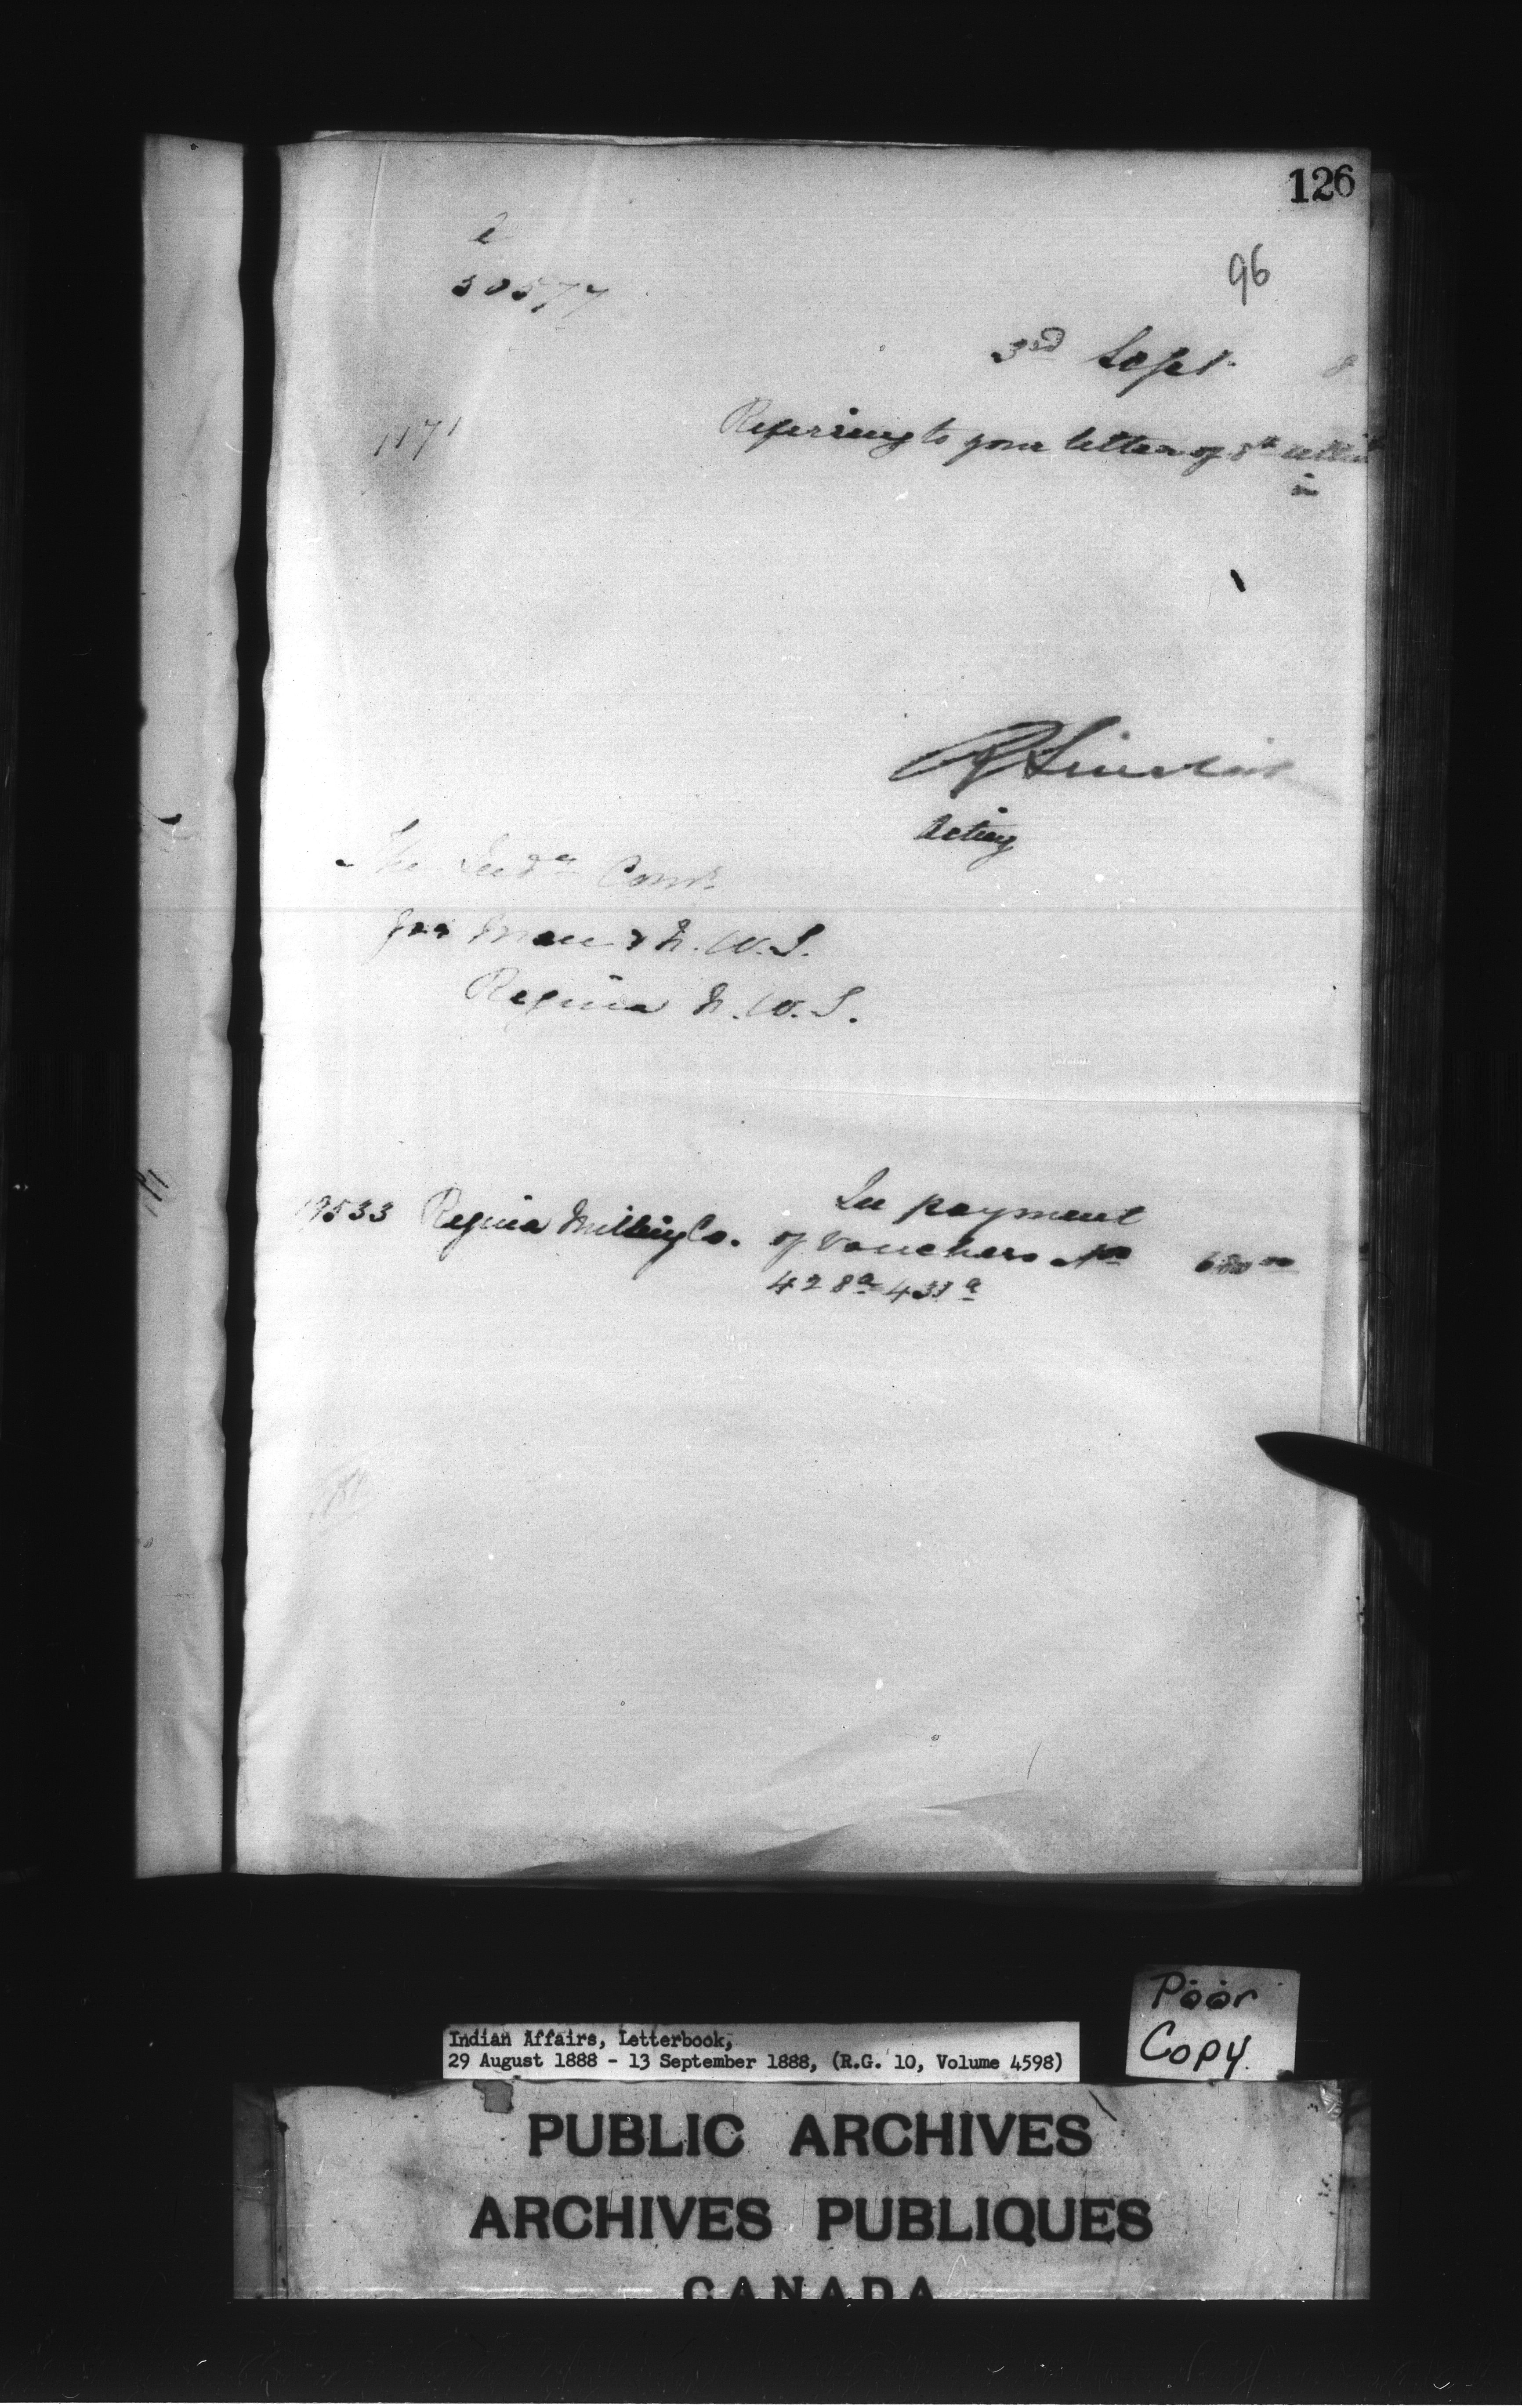 126
96
30577
3rd Sept. 8
1171
Referring to your letter of 8th
in
R Sinclair
Acting
The Indn Comr
for Man & N.W.T.
Regina N.W.T.
19533 Regina Milling Co. In payment
of Vouchers Nos
428a 431a
Poor
Copy.
Indian Affairs, Letterbook,
29 August 1888 - 13 September 1888, (R.G. 10, Volume 4598)
PUBLIC ARCHIVES
ARCHIVES PUBLIQUES
CANADA